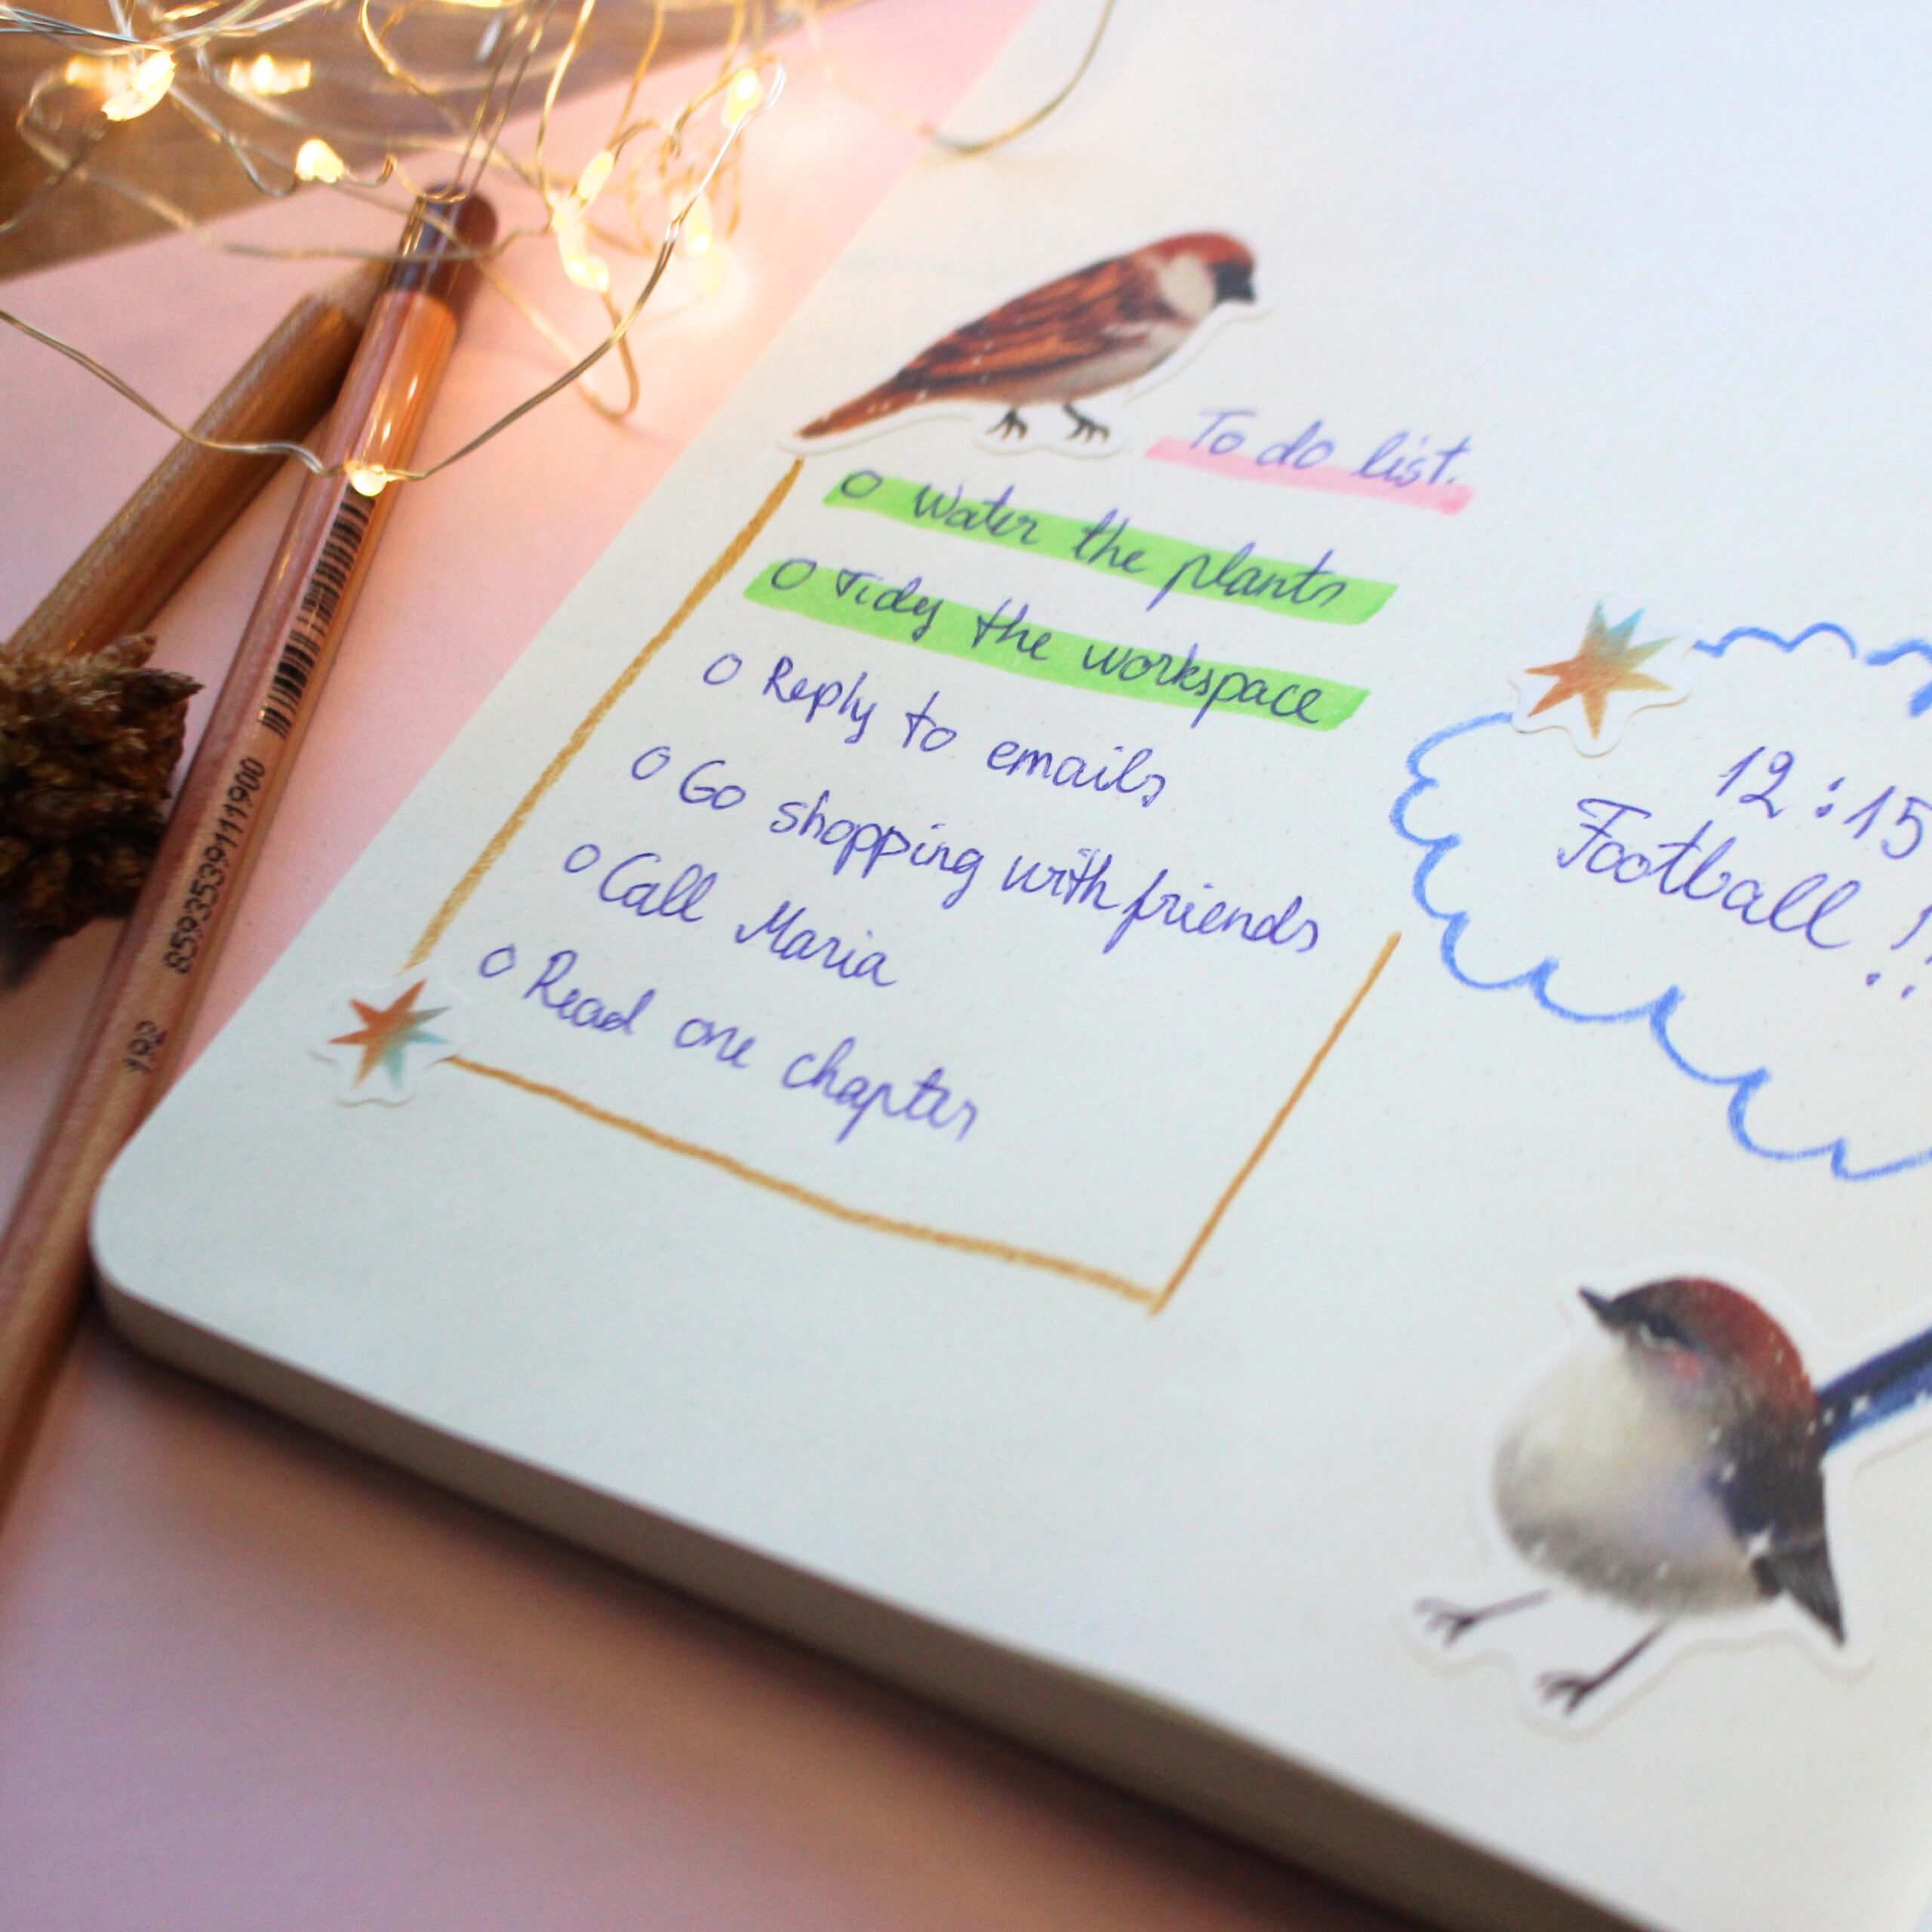 To do list.
o Water the plants
o Tidy the workspace
o Reply to emails
o Go shopping with friends
o Call Maria
o Read one chapter
12:15
Football!!
8593539111900
192